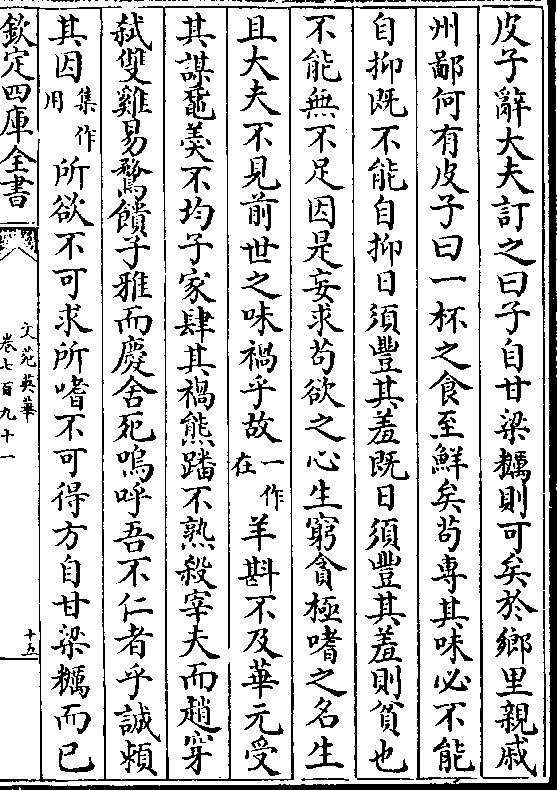 皮子辭大夫訂之曰子自甘梁糲則可矣於鄉里親戚
州鄙何有皮子曰一杯之食至鮮矣苟専其味必不能
自抑既不能自抑日須豐其羞既日須豐其羞則貧也
不能無不足因是妄求苟欲之心生窮貪極嗜之名生
且大夫不見前世之味禍乎故一作在羊斟不及華元受
其謀黿羮不均子家肆其禍熊蹯不熟殺宰夫而趙穿
弑雙雞易鶩饋子雅而慶舍死嗚呼吾不仁者乎誠頼
其因集作用所欲不可求所嗜不可得方自甘梁糲而已
欽定四庫全書
文苑英華
卷七百九十一
十五